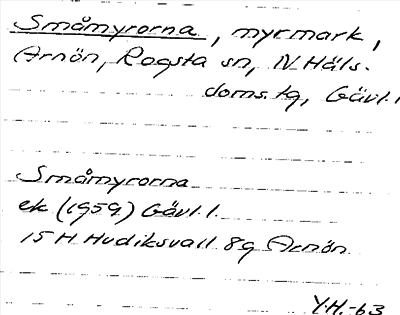 Småmyrorna, myrmark,
Arnön, Rogsta sn, N. Häls.
doms. tg, Gävl. l
Småmyrorna
ek (1959) Gävl. l.
15 H Hudiksvall 8g Arnön
Y.H.-63